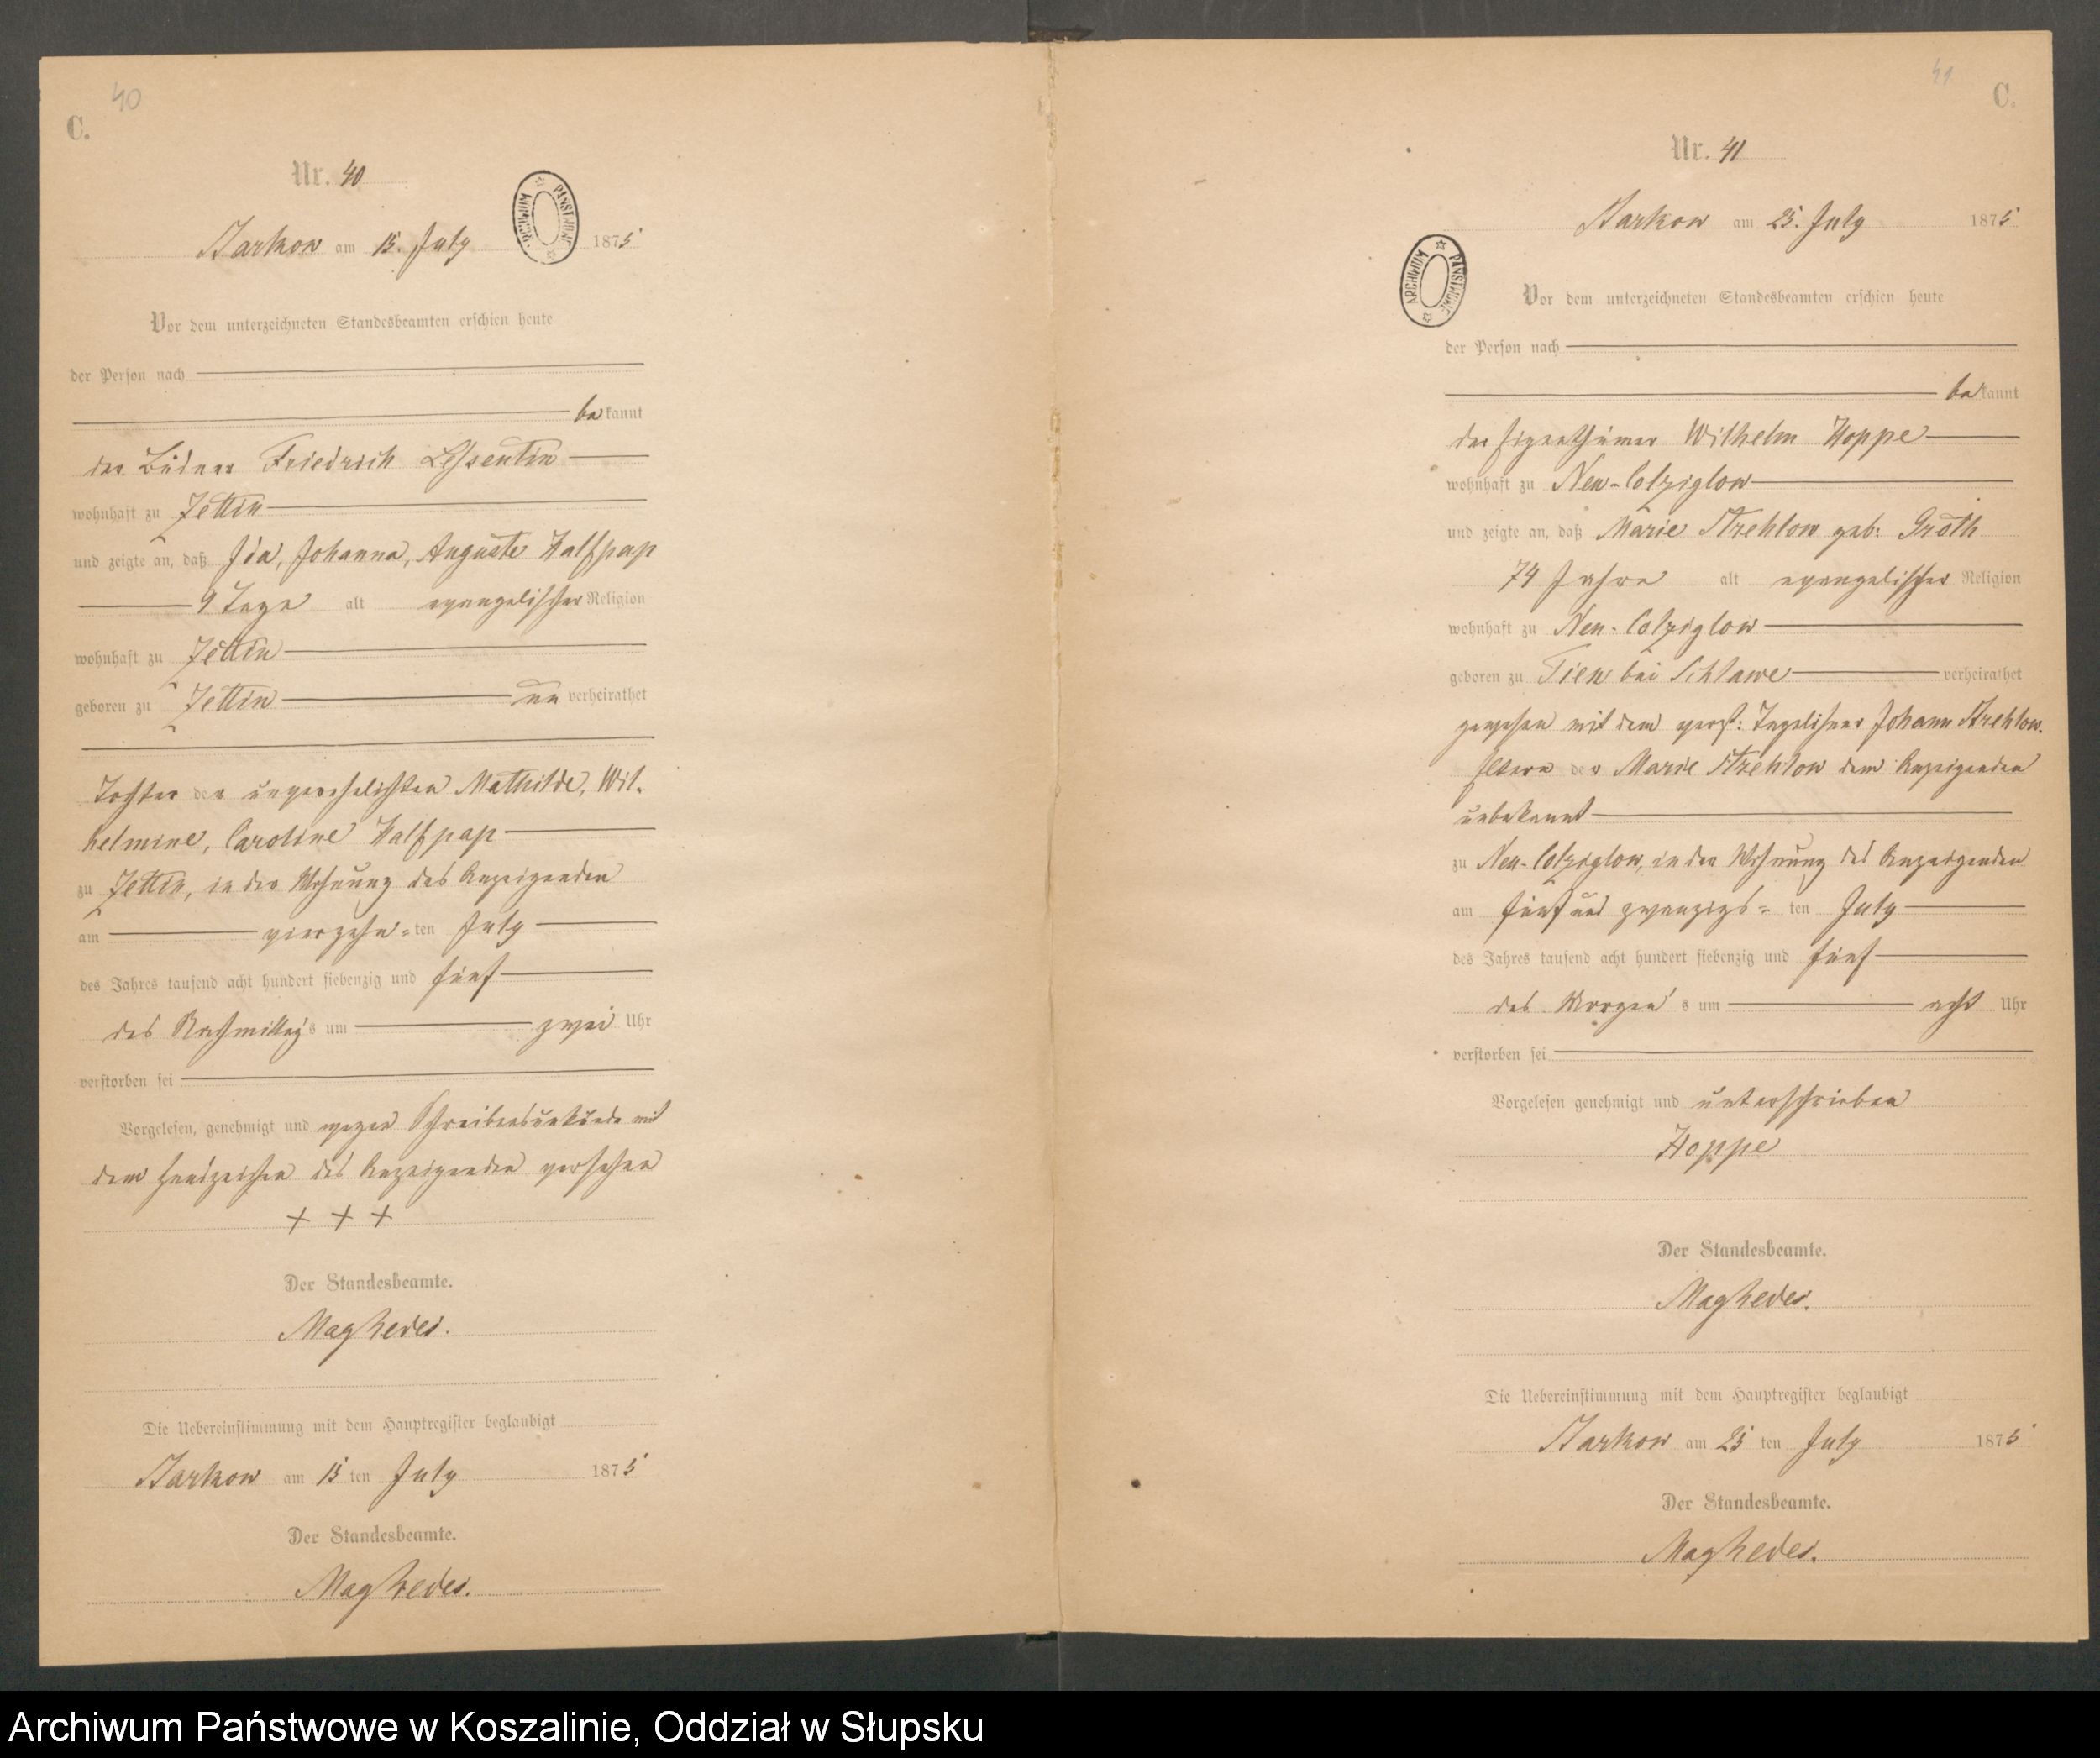 40
C.
Nr. 40
Barkow am 15. July 1875
ARCHIWUM PAŃSTWOWE
Vor dem unterzeichneten Standesbeamten erschien heute
der Person nach
bekannt
der Büdner Friedrich Lessentin
wohnhaft zu Zettin
und zeigte an, daß Ida, Johanna, Auguste Halfpap
9 Tage alt evangelischer Religion
wohnhaft zu Zettin
geboren zu Zettin unverheirathet
Tochter der unverehelichten Mathilde, Wil-
helmine, Caroline Halfpap
zu Zettin, in der Wohnung des Anzeigenden
am vierzehn-ten July
des Jahres tausend acht hundert siebenzig und fünf
des Nachmittags um zwei Uhr
verstorben sei
Vorgelesen, genehmigt und wegen Schreibensunkunde mit
dem Handzeichen des Anzeigenden versehen
+ + +
Der Standesbeamte.
Die Uebereinstimmung mit dem Hauptregister beglaubigt
Barkow am 15 ten July 1875
Der Standesbeamte.
41
C.
Nr. 41
Barkow am 25. July 1875
ARCHIWUM PAŃSTWOWE
Vor dem unterzeichneten Standesbeamten erschien heute
der Person nach
bekannt
der Eigenthümer Wilhelm Hoppe
wohnhaft zu Neu-Colziglow
und zeigte an, daß Marie Strehlow geb: Groth
74 Jahre alt evangelischer Religion
wohnhaft zu Neu-Colziglow
geboren zu Tien bei Schlawe verheirathet
gewesen mit dem verst: Tagelöhner Johann Strehlow.
Eltern der Marie Strehlow dem Anzeigenden
unbekannt
zu Neu-Colziglow, in der Wohnung des Anzeigenden
am fünf und zwanzigs-ten July
des Jahres tausend acht hundert siebenzig und fünf
des Morgens um acht Uhr
verstorben sei
Vorgelesen genehmigt und unterschrieben
Hoppe
Der Standesbeamte.
Die Uebereinstimmung mit dem Hauptregister beglaubigt
Barkow am 25 ten July 1875
Der Standesbeamte.
Archiwum Państwowe w Koszalinie, Oddział w Słupsku